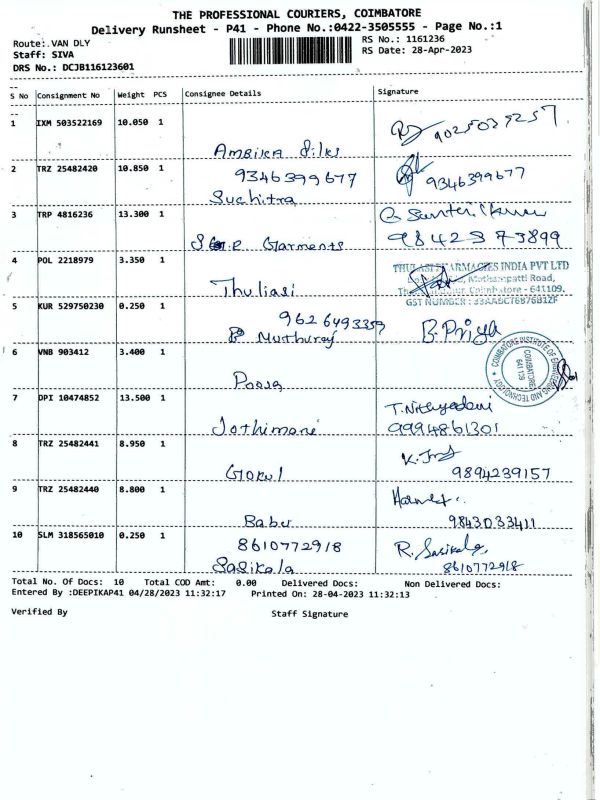 THE PROFESSIONAL COURIERS, COIMBATORE
Delivery Runsheet - P41 - Phone No.:0422-3505555 - Page No.:1
Route:.VAN DLY
RS No.: 1161236
Staff: SIVA
RS Date: 28-Apr-2023
DRS No.: DCJB116123601
S No Consignment No Weight PCS Consignee Details Signature
1 IXM 503522169 10.050 1
Ambika Silks 9025039257
2 TRZ 25482420 10.850 1
9346399677 9346399677
Suchitra
3 TRP 4816236 13.300 1
Garments 9842373899
4 POL 2218979 3.350 1
THULASI PHARMACIES INDIA PVT LTD
Mothampatti Road,
Coimbatore - 641109.
Thuliasi GST NUMBER :
5 KUR 529750230 0.250 1
9626493359 B.Priya
P. Muthuraj
6 VNB 903412 3.400 1
COIMBATORE INSTITUTE OF ENGINEERING AND TECHNOLOGY
COIMBATORE
641 109
Pooja
7 DPI 10474852 13.500 1
T.Nithyadevi
Jothimani 9994861301
8 TRZ 25482441 8.950 1
Gokul 9894239157
9 TRZ 25482440 8.800 1
Babu 9843033411
10 SLM 318565010 0.250 1
8610772918 R. Sasikala
Sasikala 8610772918
Total No. Of Docs: 10 Total COD Amt: 0.00 Delivered Docs: Non Delivered Docs:
Entered By :DEEPIKAP41 04/28/2023 11:32:17 Printed On: 28-04-2023 11:32:13
Verified By Staff Signature